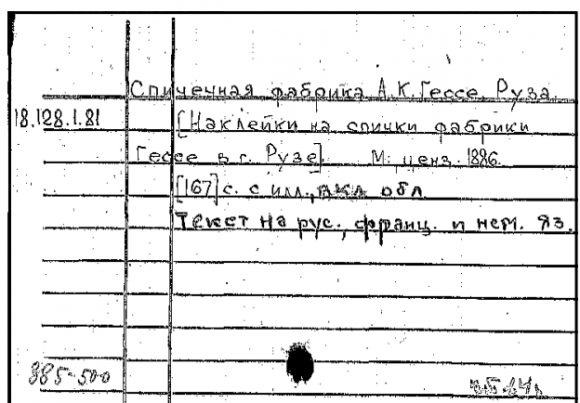 Спичечная фабрика А.К. Гессе. Руза
18.128.1.81 [Наклейки на спички фабрики
Гессе в г. Рузе]. М: ценз. 1886.
[167] с. с илл., вкл. обл
Текст на рус., франц. и нем. яз.
385-500